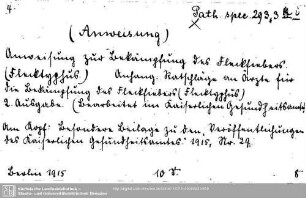 4. Path. spec. 293,3
(Anweisung)
Anweisung zur Bekämpfung des Fleckfiebers
(Flecktyphus) Anhang: Ratschläge an Ärzte für
die Bekämpfung des Fleckfiebers (Flecktyphus)
2. Ausgabe. (Bearbeitet im Kaiserlichen Gesundheitsamt)
Am Kopf: Besondere Beilage zu den Veröffentlichungen
des Kaiserlichen Gesundheitsamtes. 1915, Nr. 29.
Berlin 1915 10 S. 8